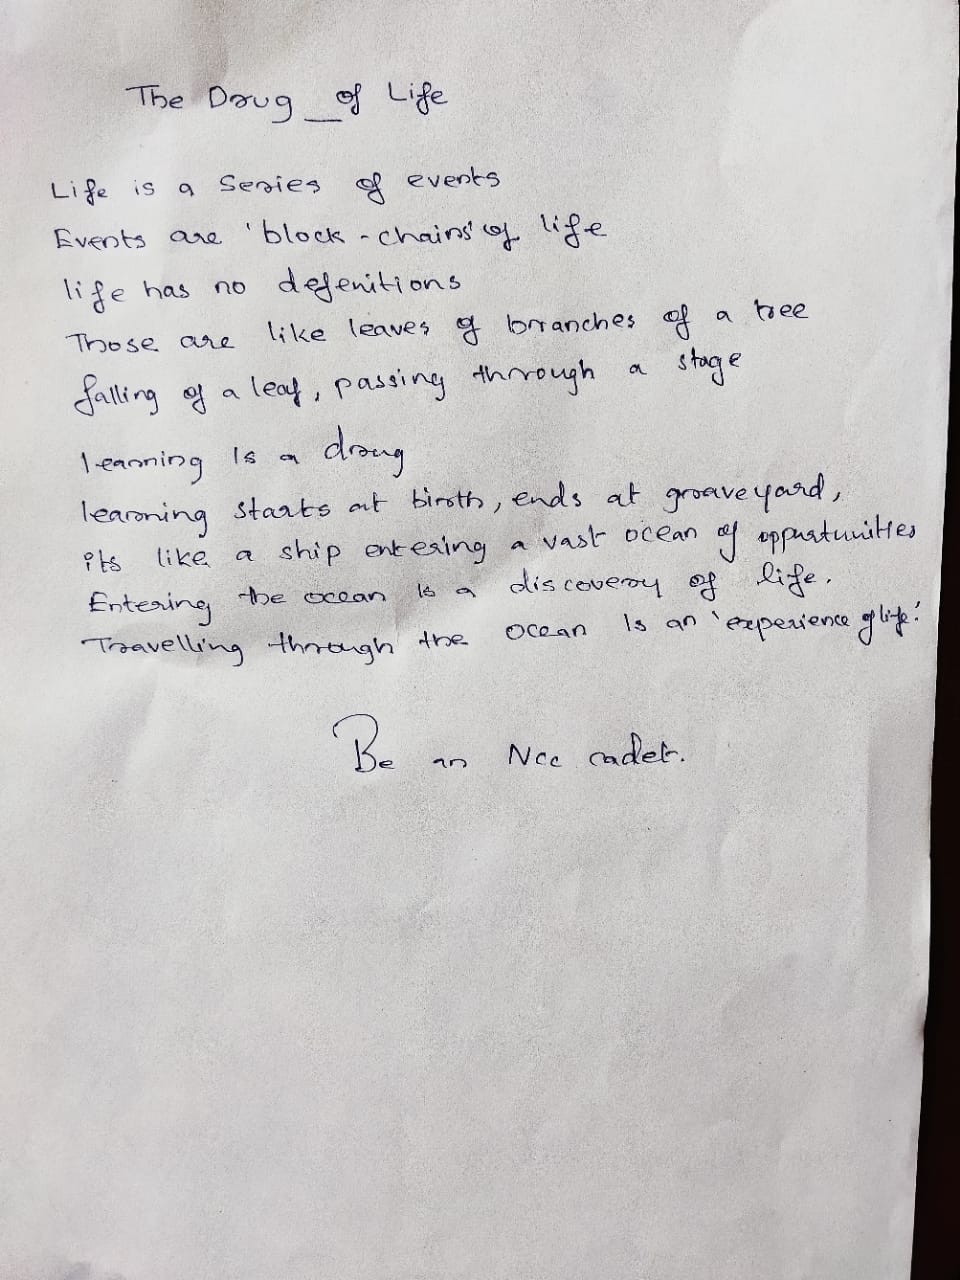 The Drug _ of Life
Life is a series of events
Events are 'block-chains' of life
life has no defenitions
Those are like leaves of branches of a tree
falling of a leaf, passing through a stage
learning is a drug
learning starts at birth, ends at graveyard,
its like a ship entering a vast ocean of oppurtunities
Entering the ocean is a discovery of life.
Travelling through the ocean is an 'experience of life.'
Be an Ncc cadet.